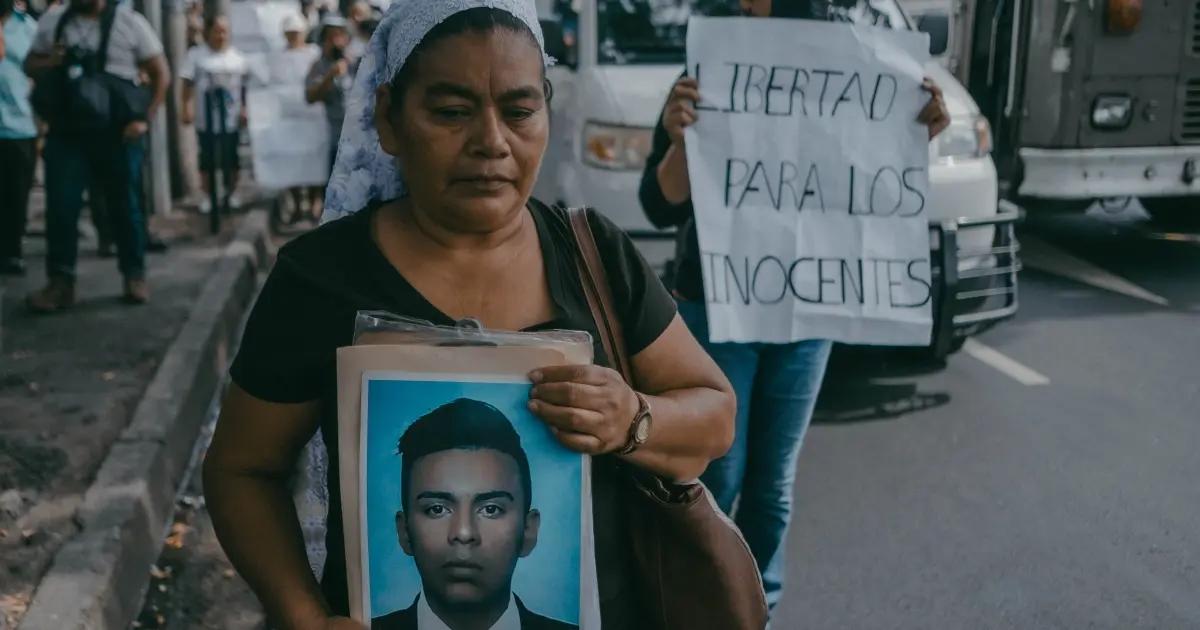 LIBERTAD
PARA LOS
INOCENTES